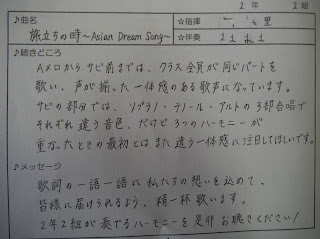 2年 2組
♪曲名
旅立ちの時~Asian Dream Song~
☆指揮 里
☆伴奏
♪聴きどころ
Aメロからサビ前までは、クラス全員が同じパートを
歌い、声が揃った一体感のある歌声になっています。
サビの部分では、ソプラノ・テノール・アルトの3部合唱で
それぞれ違う音色、だけど3つのハーモニーが
重なったときの最初とはまた違う一体感に注目してほしいです。
♪メッセージ
歌詞の一語一語に私たちの想いを込めて、
皆様に届けられるよう、精一杯歌います。
2年2組が奏でるハーモニーを是非お聴きください!